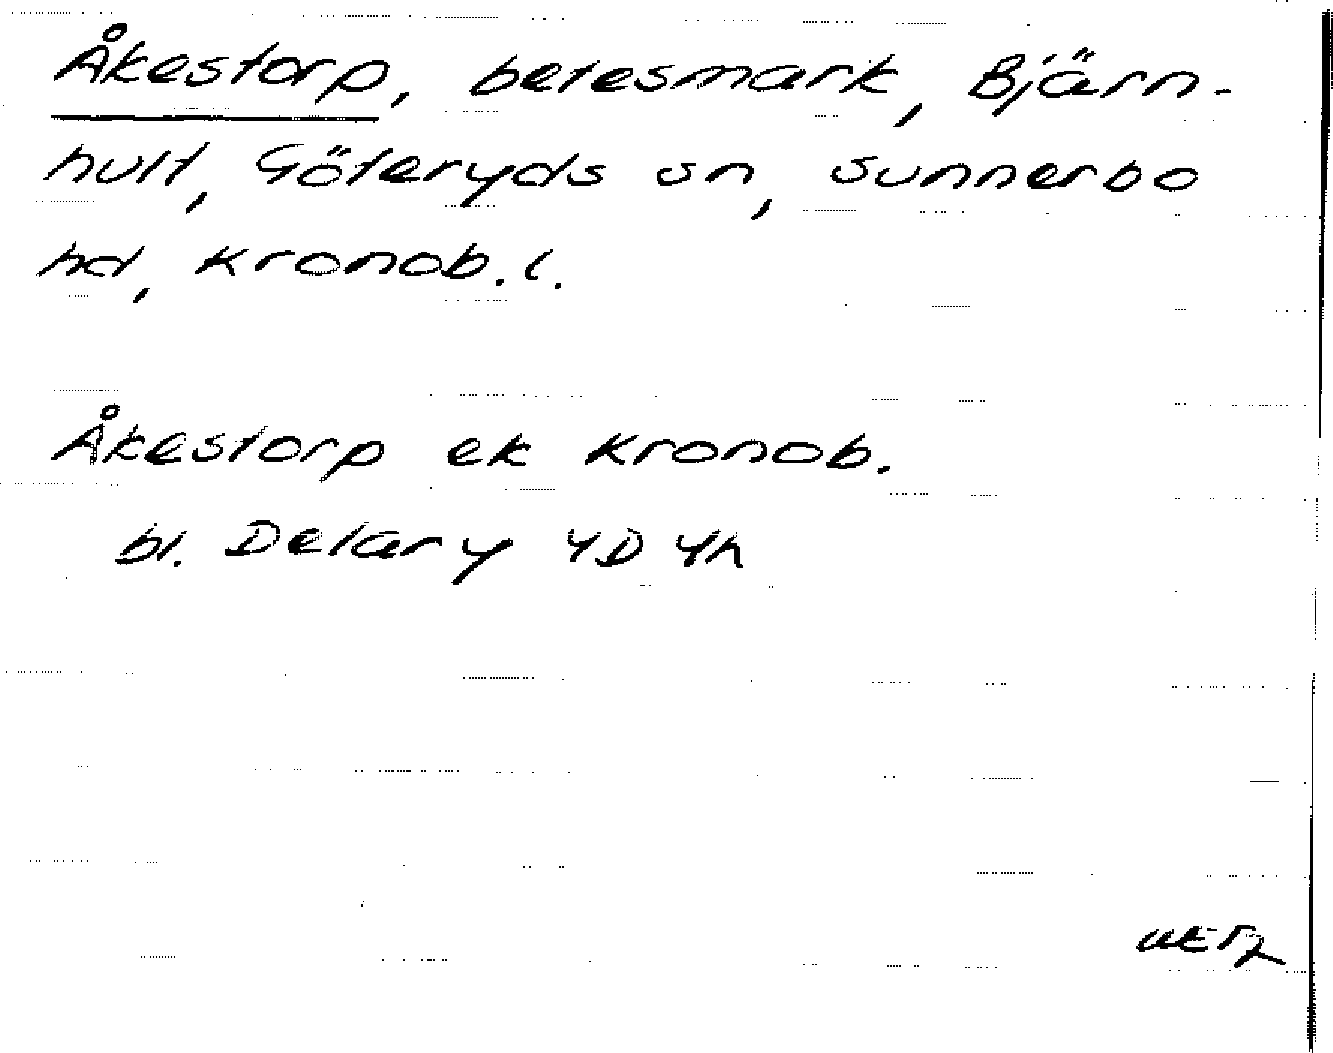 Åkestorp, betesmark, Bjärn-
hult, Göteryds sn, Sunnerbo
hd, Kronob. l.
Åkestorp ek Kronob.
bl. Delary 4D 4h